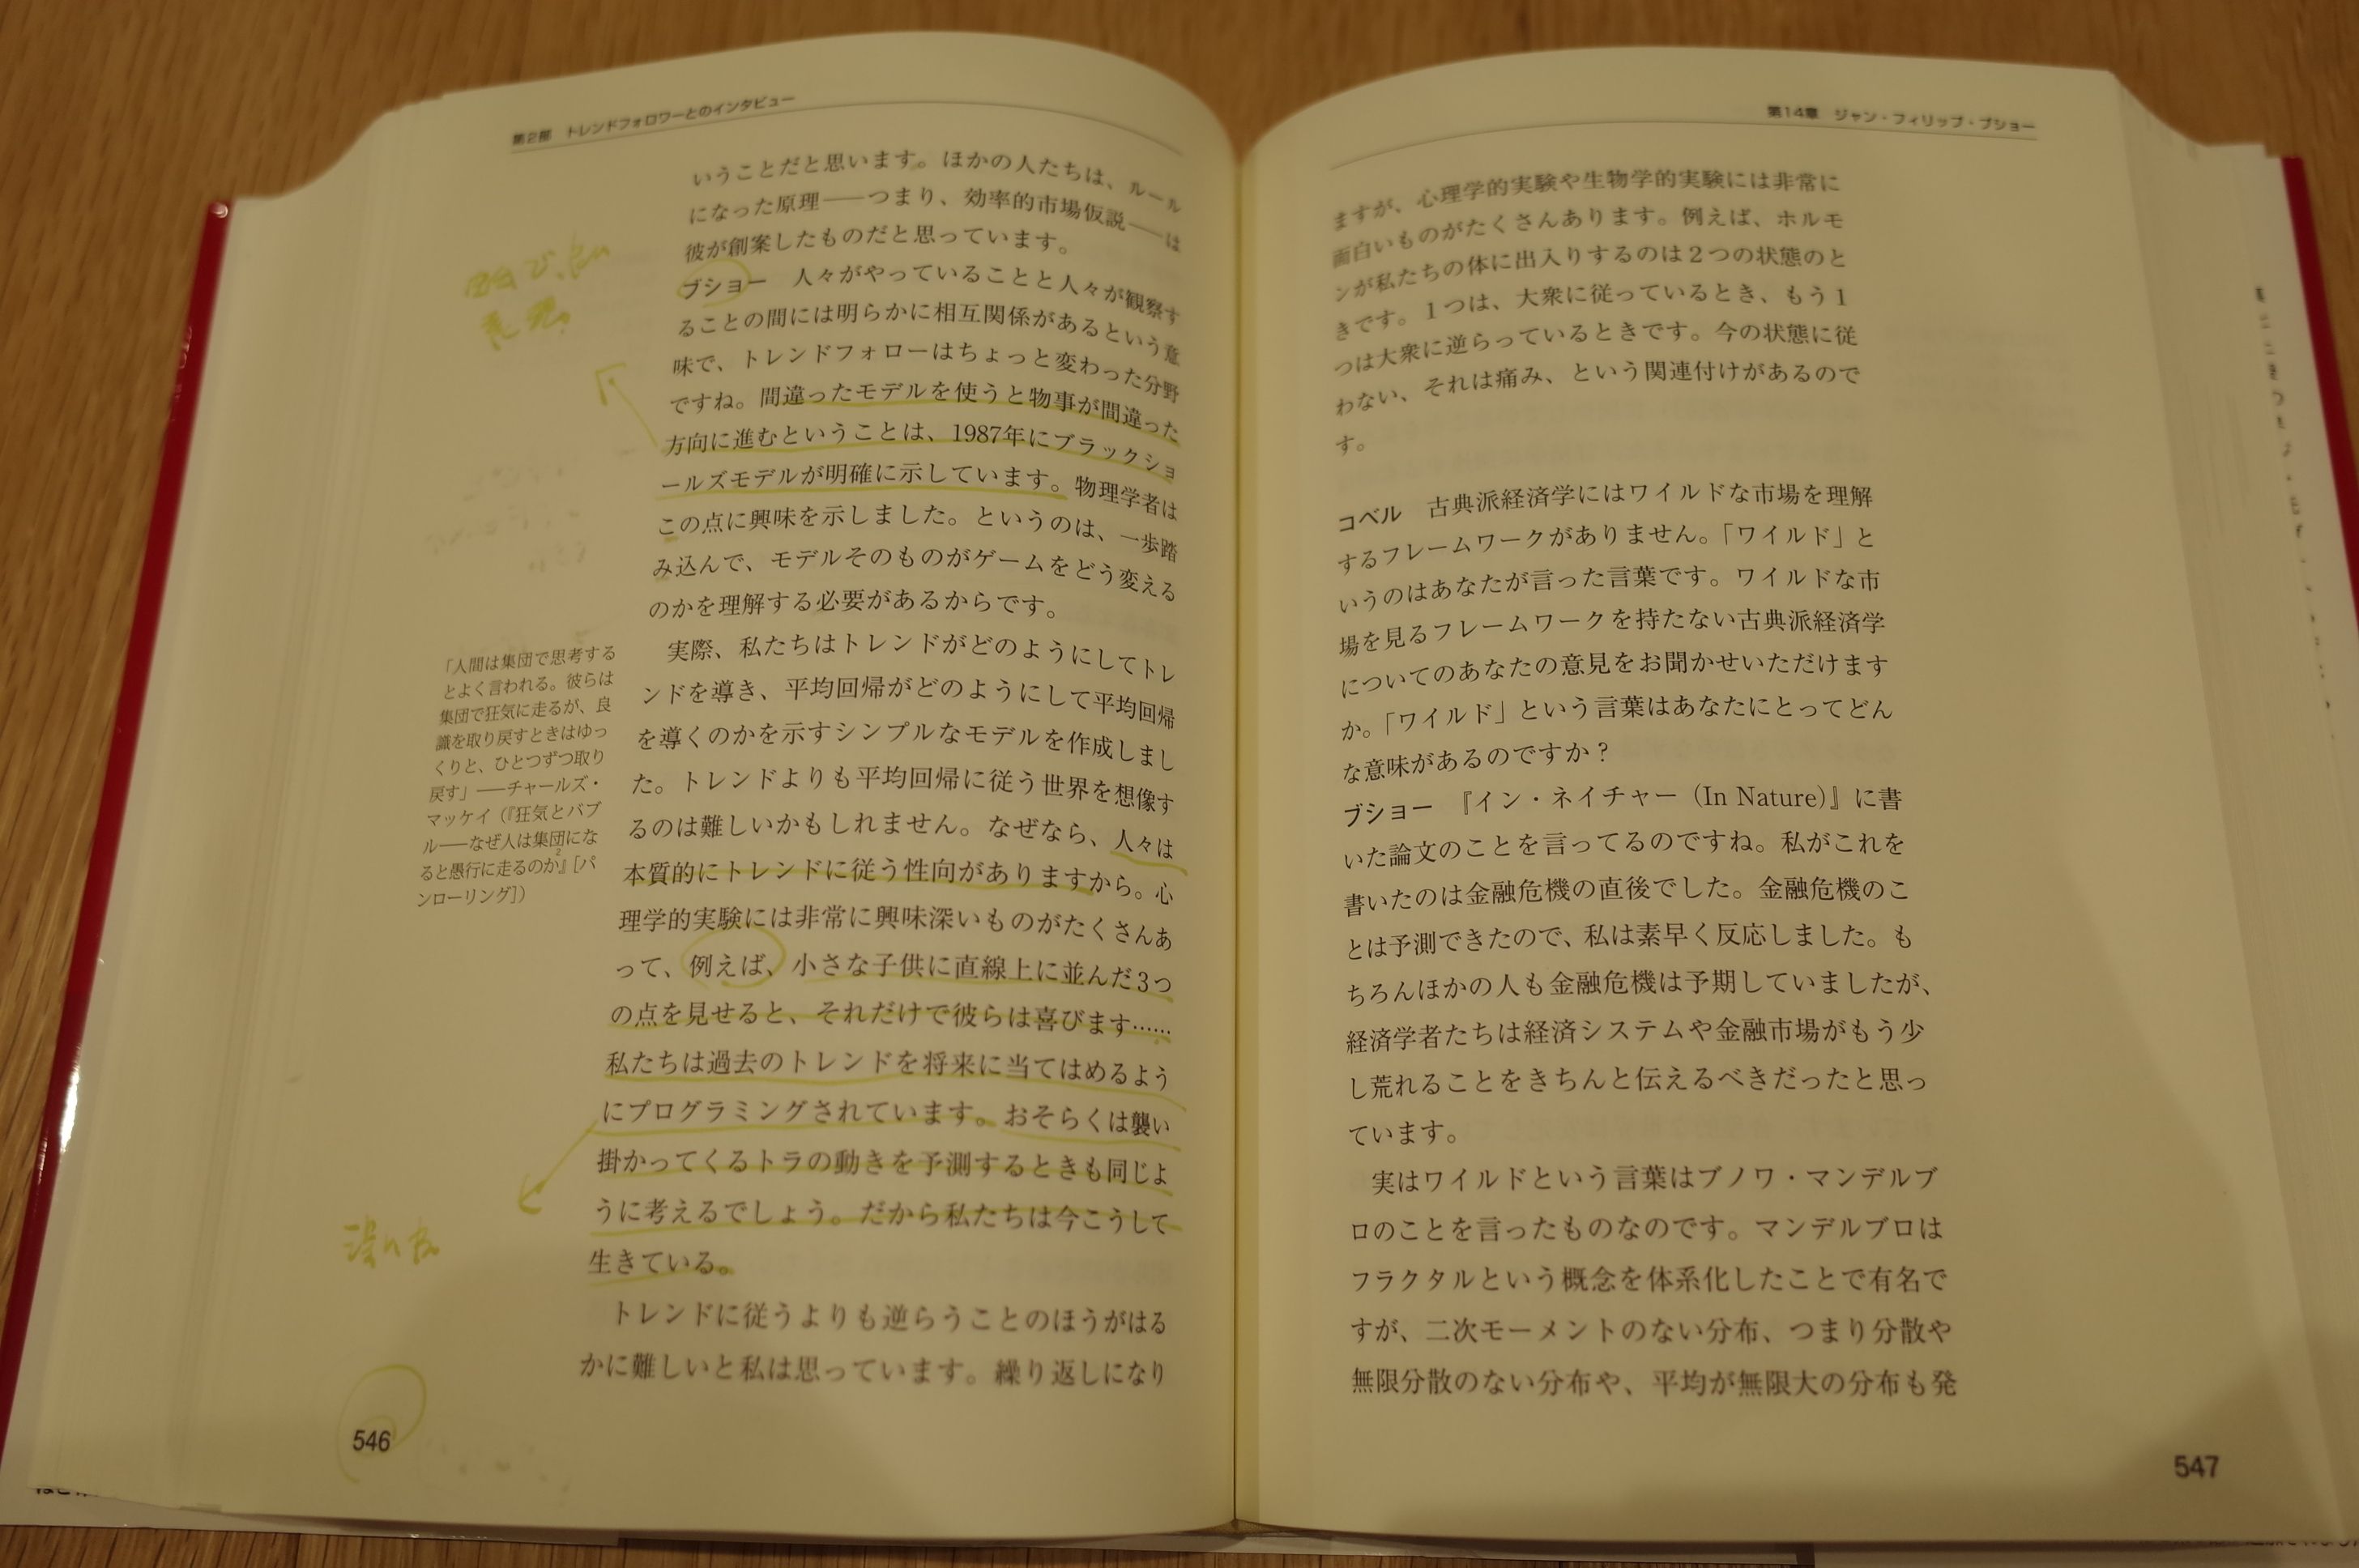 第2部　トレンドフォロワーとのインタビュー
いうことだと思います。ほかの人たちは、ルール
になった原理——つまり、効率的市場仮説——は
彼が創案したものだと思っています。
ブショー　人々がやっていることと人々が観察す
ることの間には明らかに相互関係があるという意
味で、トレンドフォローはちょっと変わった分野
ですね。間違ったモデルを使うと物事が間違った
方向に進むということは、1987年にブラックショ
ールズモデルが明確に示しています。物理学者は
この点に興味を示しました。というのは、一歩踏
み込んで、モデルそのものがゲームをどう変える
のかを理解する必要があるからです。
実際、私たちはトレンドがどのようにしてトレ
ンドを導き、平均回帰がどのようにして平均回帰
を導くのかを示すシンプルなモデルを作成しまし
た。トレンドよりも平均回帰に従う世界を想像す
るのは難しいかもしれません。なぜなら、人々は
本質的にトレンドに従う性向がありますから。心
理学的実験には非常に興味深いものがたくさんあ
って、例えば、小さな子供に直線上に並んだ3つ
の点を見せると、それだけで彼らは喜びます……
私たちは過去のトレンドを将来に当てはめるよう
にプログラミングされています。おそらくは襲い
掛かってくるトラの動きを予測するときも同じよ
うに考えるでしょう。だから私たちは今こうして
生きている。
トレンドに従うよりも逆らうことのほうがはる
かに難しいと私は思っています。繰り返しになり
「人間は集団で思考する
とよく言われる。彼らは
集団で狂気に走るが、良
識を取り戻すときはゆっ
くりと、ひとつずつ取り
戻す」——チャールズ・
マッケイ（『狂気とバブ
ル——なぜ人は集団にな
ると愚行に走るのか』［パ
ンローリング］）
546
第14章　ジャン・フィリップ・ブショー
ますが、心理学的実験や生物学的実験には非常に
面白いものがたくさんあります。例えば、ホルモ
ンが私たちの体に出入りするのは2つの状態のと
きです。1つは、大衆に従っているとき、もう1
つは大衆に逆らっているときです。今の状態に従
わない、それは痛み、という関連付けがあるので
す。
コベル　古典派経済学にはワイルドな市場を理解
するフレームワークがありません。「ワイルド」と
いうのはあなたが言った言葉です。ワイルドな市
場を見るフレームワークを持たない古典派経済学
についてのあなたの意見をお聞かせいただけます
か。「ワイルド」という言葉はあなたにとってどん
な意味があるのですか？
ブショー　『イン・ネイチャー（In Nature）』に書
いた論文のことを言ってるのですね。私がこれを
書いたのは金融危機の直後でした。金融危機のこ
とは予測できたので、私は素早く反応しました。も
ちろんほかの人も金融危機は予期していましたが、
経済学者たちは経済システムや金融市場がもう少
し荒れることをきちんと伝えるべきだったと思っ
ています。
実はワイルドという言葉はブノワ・マンデルブ
ロのことを言ったものなのです。マンデルブロは
フラクタルという概念を体系化したことで有名で
すが、二次モーメントのない分布、つまり分散や
無限分散のない分布や、平均が無限大の分布も発
547